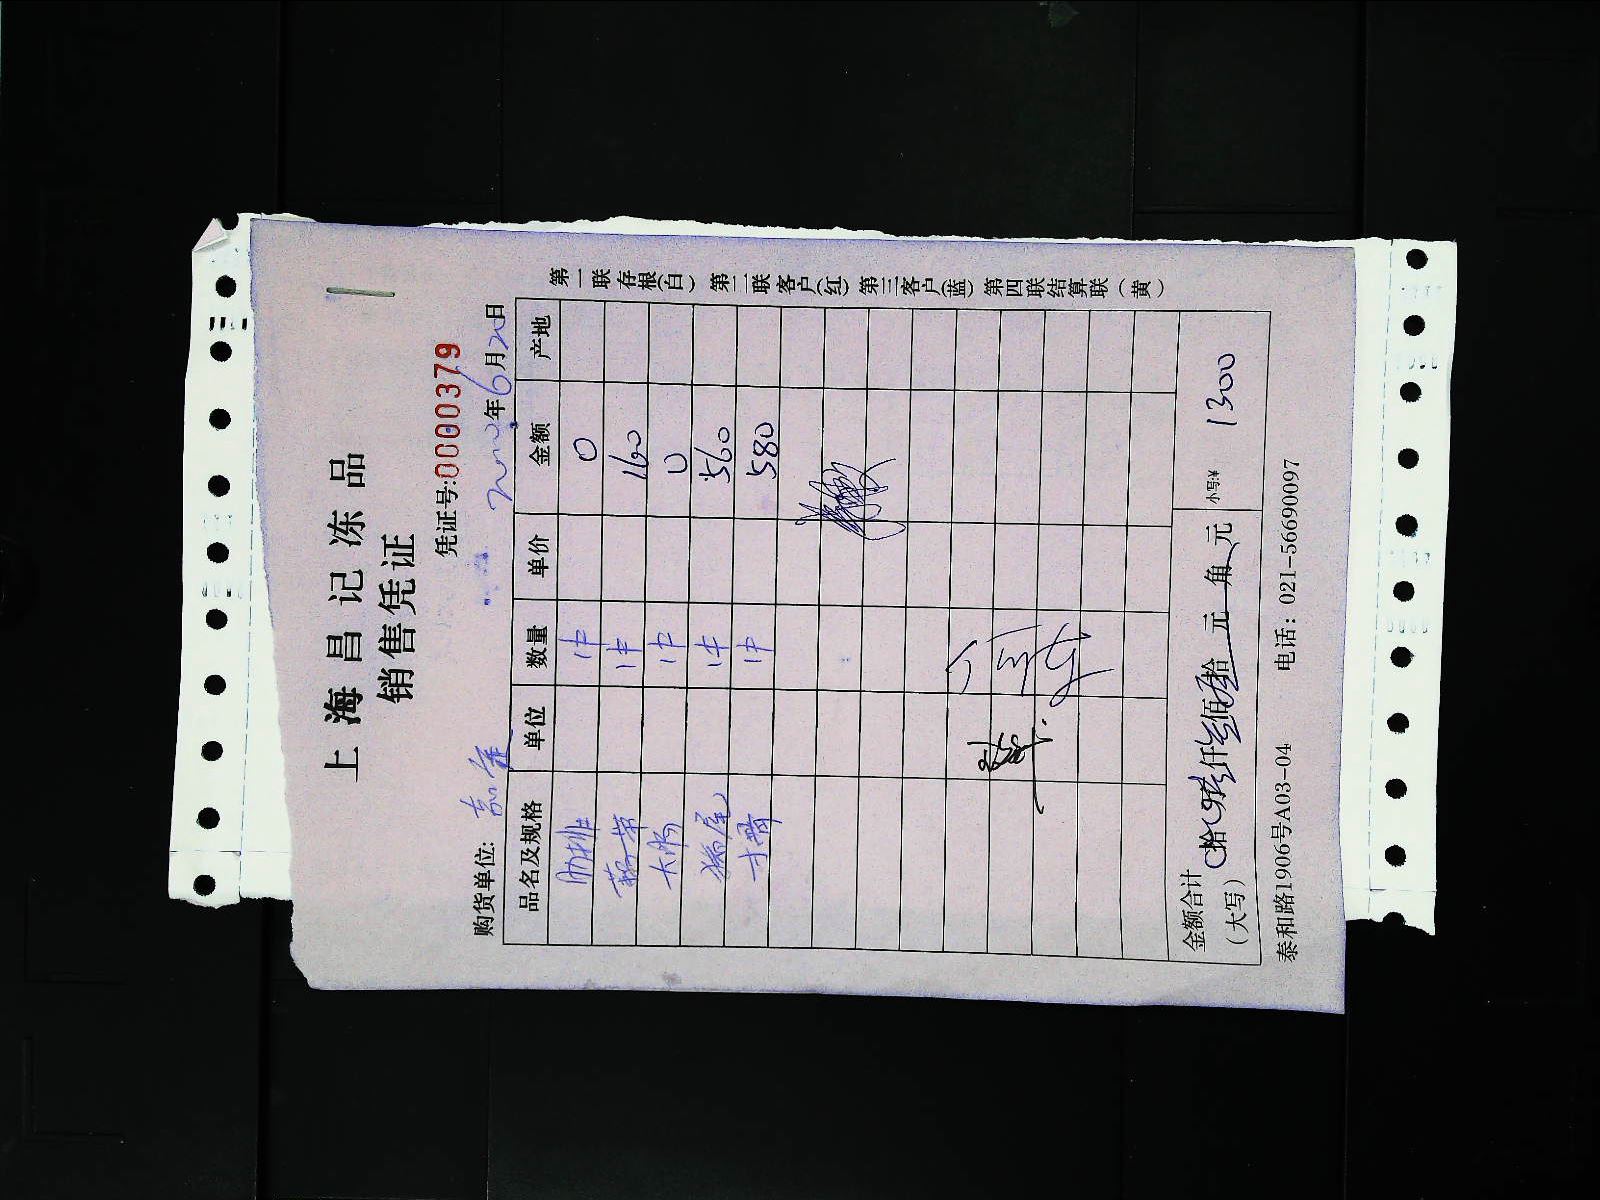 上海昌记冻品
销售凭证
凭证号:0000379
购货单位: 年6月20日
品名及规格 单位 数量 单价 金额 产地
肋排 1件 0
1件 160
大肠 1件 0
猪尾 1件 560
寸骨 1件 580
金额合计(大写) 拾 仟 佰 拾 元 角 元 小写:¥ 1300
泰和路1906号A03-04 电话: 021-56690097
第一联存根(白) 第二联客户(红) 第三客户(蓝) 第四联结算联(黄)